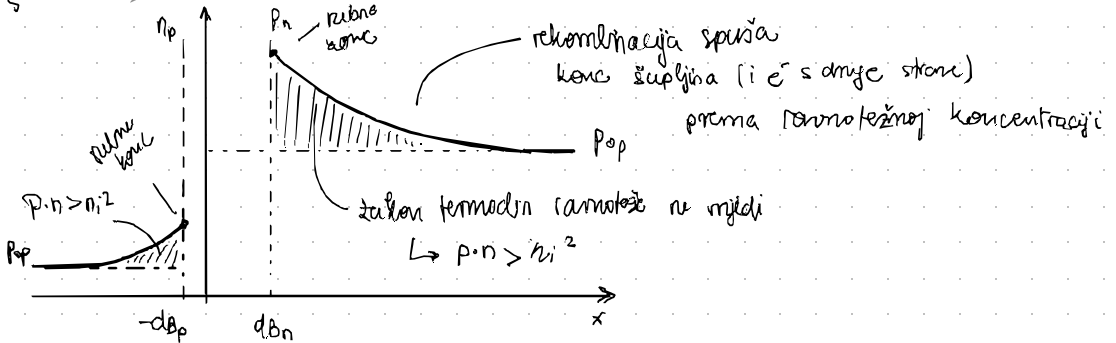 np
pn
rubne
konc
rekombinacija spušta
konc šupljina (i e⁻ s druge strane)
prema ravnotežnoj koncentraciji
rubne
konc
p·n>ni²
Pop
Pop
zakon termodin ravnotež ne vrijedi
↳ p·n > ni²
-dBp
dBn
x